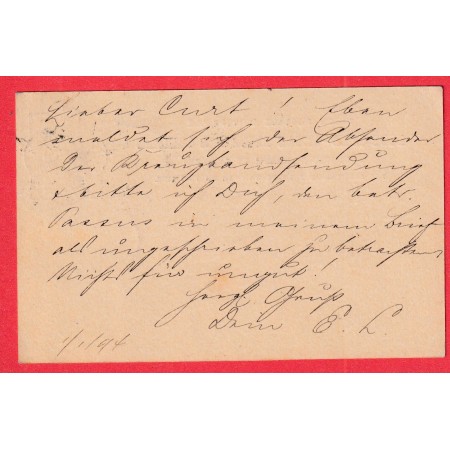 Lieber Curt! Eben
meldet sich der Absender
der Kreuzbandsendung
& bitte ich Dich, den betr.
Passus in meinem Brief
als ungeschrieben zu betrachten
Nichts für ungut!
Herzl. Gruß
Dein E. L.
4/1/94